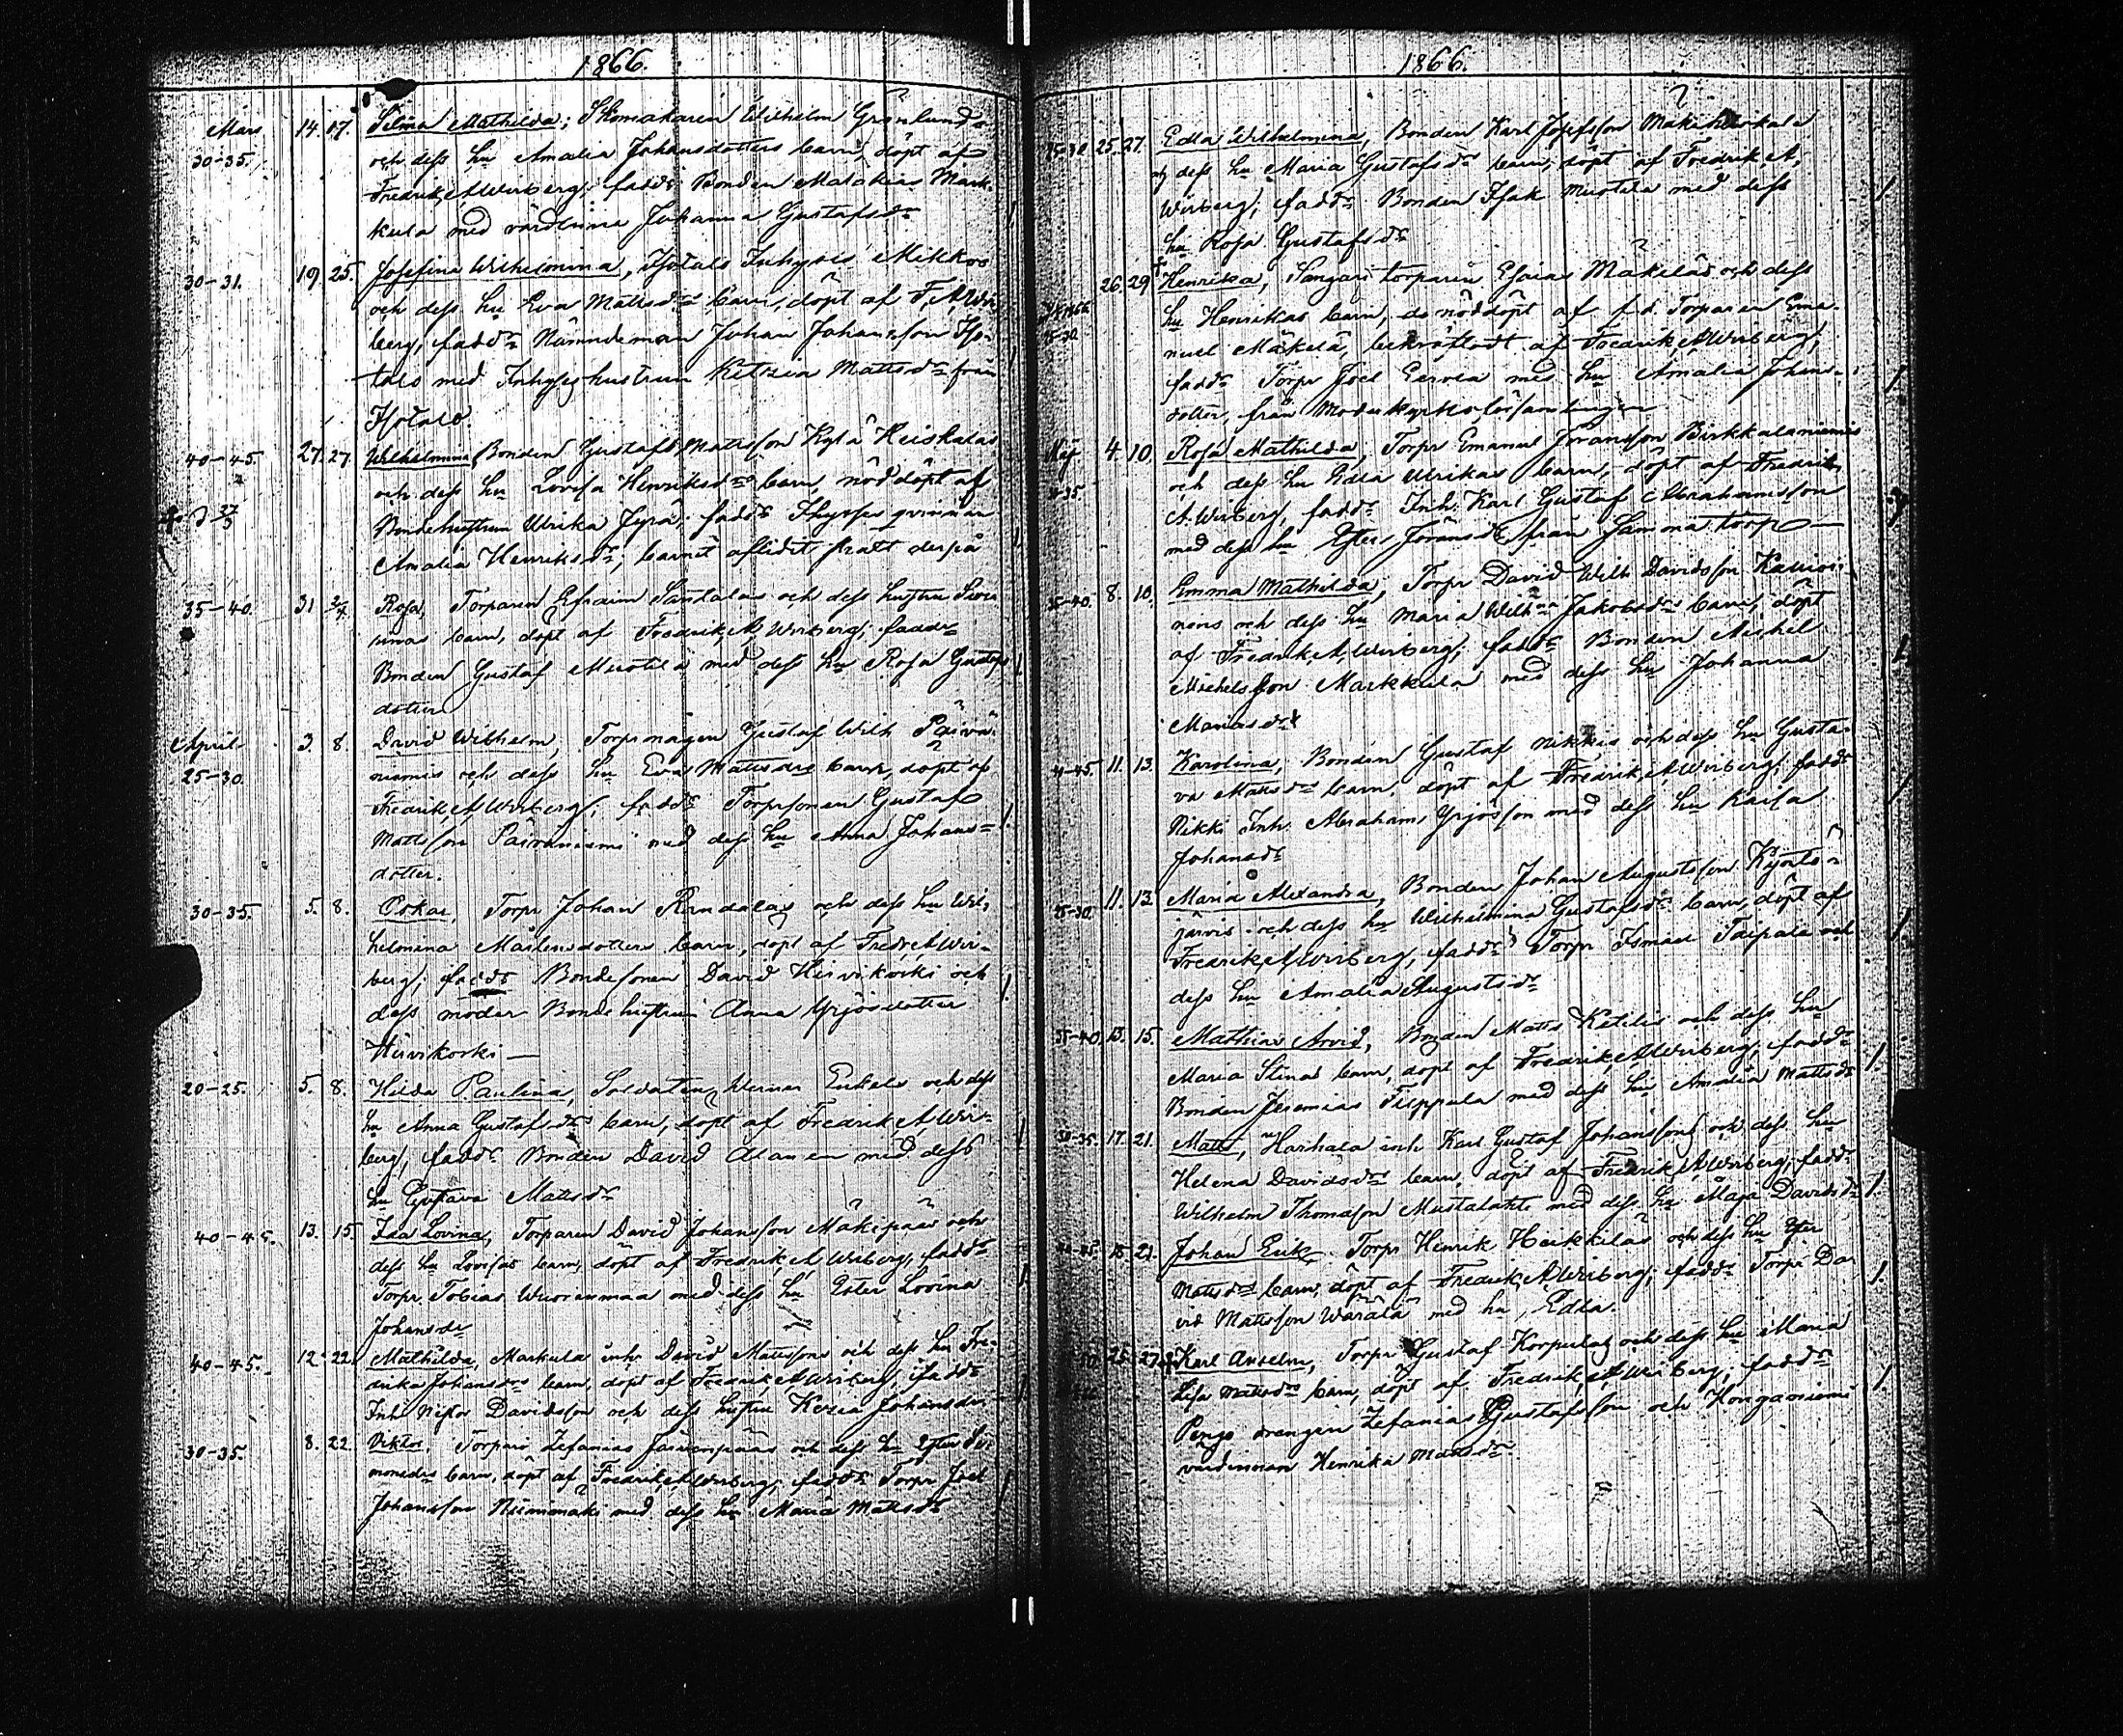 1866.
Mars 14. 17. Selma Mathilda; Skomakaren Wilhelm Grönlunds
30-35. och dess hu Amalia Johansdotters barn, döpt af
Fredrik A Wirberg; fadd: Bonden Malakias Mark-
kula med värdinna Johanna Gustafsdr
30-31. 19. 25. Josefina Wilhelmina, Isotalo Inhyses Mikkos
och dess hu Eva Mattsdrs barn, döpt af F. A. Wir-
berg, faddr Nämndeman Johan Johansson Iso-
talo med Inhyseshustrun Ketzia Mattsdr från
Isotalo.
40-45. 27. 27. Wilhelmina, Bonden Gustaf Mattsson Kylä Heiskalas
och dess hu Lovisa Henriksdrs barn, nöddöpt af
Bondehustrun Ulrika Jyrä; faddr Ihyses qvinnan
Amalia Henriksdr, barnet aflidit straxt derpå
35-40. 31 2/4 Rosa, Torparen Efraim Santalas och dess hustru
barn, döpt af Fredrik A Wirberg; faddr
Bonden Gustaf Mustila med dess hu Rosa Gustafs
dotter
April 3. 8. David Wilhelm, Torpmågen Gustaf Wilh Päivä-
25-30. niemis och dess hu Eva Mattsdrs barn, döpt af
Fredrik A Wirberg, faddr Torpsonen Gustaf
Mattsson Päiväniemi med dess hu Anna Johans=
dotter.
30-35. 5. 8. Oskar, Torpr Johan Randalas och dess hu Wil-
helmina Mårtensdotters barn, döpt af Fredr A Wir-
berg, faddr Bondesonen David Hirvikoski och
dess moder Bondehustrun Anna Yrjösdotter
Hirvikoski —
20-25. 5. 8. Hilda Paulina, Soldaten Werner Enkels och dess
hu Anna Gustafsdrs barn, döpt af Fredrik A Wir-
berg, faddr Bonden David Alanen med dess
hu Gustava Mattsdr
40-45. 13. 15. Ida Lovina, Torparen David Johansson Mäkipääs och
dess hu Lovisas barn, döpt af Fredrik A Wirberg, faddr
Torpr Tobias Wuorenmaa med dess hu Ester Lovina
Johansdr
40-45. 12. 22. Mathilda, Markula inh David Mattssons och dess hu Fre-
drika Johansdrs barn, döpt af Fredrik A Wirberg, faddr
Inh Nestor Davidsson och dess hustru Kezia Johansdr
30-35. 8. 22. Viktor, Torparn Zefanias Järvenpääs och dess hu Ester Si-
monsdrs barn, döpt af Fredrik A Wirberg, faddr Torpr Joel
Johansson Niinimäki med dess hu Maria Mattsdr
1866.
25-30 25. 27. Edla Wilhelmina, Bonden Karl Josefsson Mäkiheiskala
och dess hu Maria Gustafsdrs barn, döpt af Fredrik A.
Wirberg, faddr Bonden Isak Mustila med dess
hu Rosa Gustafsdr
26. 29. Henrika, Sangari torparen Esaias Mäkeläs och dess
hu Henrikas barn, do nöddöpt af f.d. Torparen Ema-
nuel Mäkelä, bekräftadt af Fredrik A Wirberg;
faddr Torpr Joel Eerola med hu Amalia Johans-
dotter, från Moderkyrkoförsamlingen
Maj 4. 10. Rosa Mathilda, Torpr Emanuel Göransson Birkkalaniemis
och dess hu Edla Ulrikas barn, döpt af Fredrik
A. Wirberg, faddr Inh. Karl Gustaf Abrahamsson
med dess hu Ester Göransdr från samma torp —
35-40. 8. 10. Emma Mathilda, Torpr David Wilh Davidsson
nens och dess hu Maria Wilhna Jakobsdrs barn, döpt
af Fredrik A. Wirberg, faddr Bonden Michel
Michelsson Markkula med dess hu Johanna
Mariasdr
11. 13. Karolina, Bonden Gustaf Nikkis och dess hu Gusta-
va Mattsdrs barn, döpt af Fredrik A Wirberg, faddr
Nikki Inh. Abraham Yrjösson med dess hu Kaisa
Johansdr
25-30. 11. 13. Maria Alexandra, Bonden Johan Augustsson
järvis och dess hu Wilhelmina Gustafsdrs barn, döpt af
Fredrik A Wirberg, faddr Torpr Ismael Taipale och
dess hu Amalia Augustsdr
35-40. 13. 15. Mathias Arvid, Bonden Matts Ketolis och dess hu
Maria Stinas barn, döpt af Fredrik A Wirberg, faddr
Bonden Jeremias Tuppela med dess hu Amalia Mattsdr
30-35. 17. 21. Matts, Harhala inh Karl Gustaf Johanssons och dess hu
Helena Davidsdrs barn, döpt af Fredrik A Wirberg, faddr
Wilhelm Thomasson Mustalahti med dess hu Maja Davidsdr
18. 21. Johan Erik, Torpr Henrik Heikkiläs och dess hu Ester
Mattsdrs barn, döpt af Fredrik A Wirberg, faddr Torpr Da-
vid Mattsson Wärälä med hu, Edla.
25. 27. Karl Anselm, Torpr Gustaf Korpulas och dess hu Maria
Lisa Mattsdrs barn, döpt af Fredrik A Wirberg, faddr
drengen Zefanias Gustafsson och Honganiemi
värdinnan Henrika Mattsdr